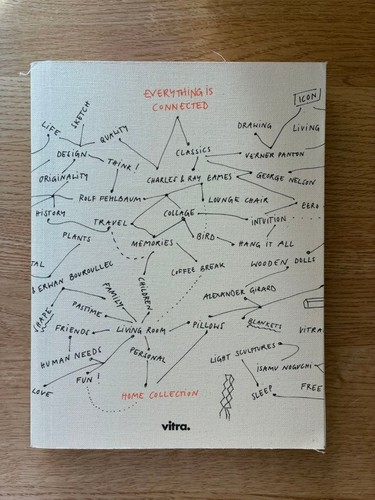 EVERYTHING IS
CONNECTED
ICON
LIFE
SKETCH
QUALITY
DRAWING
LIVING
DESIGN
THINK!
CLASSICS
VERNER PANTON
ORIGINALITY
CHARLES & RAY EAMES
GEORGE NELSON
ROLF FEHLBAUM
LOUNGE CHAIR
EERO
HISTORY
TRAVEL
COLLAGE
INTUITION
PLANTS
MEMORIES
BIRD
HANG IT ALL
TAL
& ERWAN BOUROULLEC
CHILDREN
COFFEE BREAK
WOODEN DOLLS
SHAPE
FAMILY
ALEXANDER GIRARD
PASTIME
FRIENDS
LIVING ROOM
PILLOWS
BLANKETS
VITRA
HUMAN NEEDS
PERSONAL
LIGHT SCULPTURES
ISAMU NOGUCHI
FUN!
LOVE
HOME COLLECTION
SLEEP
FREE
vitra.